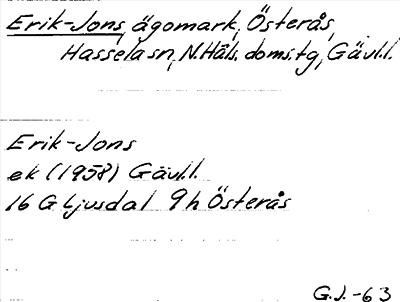 Erik-Jons, ägomark, Österås,
Hassela sn, N.Häls. doms.tg, Gävl.l.
Erik-Jons
ek (1958) Gävl.l.
16 G Ljusdal 9h Österås
G.J.-63